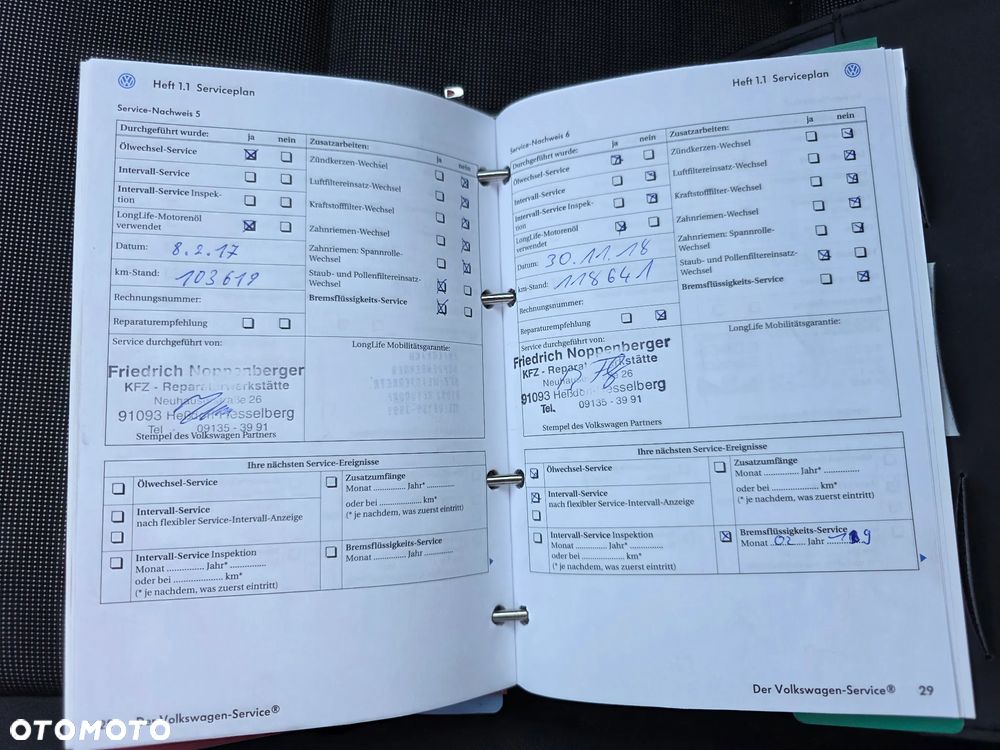 Heft 1.1 Serviceplan
Service-Nachweis 5
Durchgeführt wurde: ja nein Zusatzarbeiten: ja nein
Ölwechsel-Service
Zündkerzen-Wechsel
Intervall-Service
Luftfiltereinsatz-Wechsel
Intervall-Service Inspek-
tion
Kraftstofffilter-Wechsel
LongLife-Motorenöl
verwendet
Zahnriemen-Wechsel
Datum: 8.2.17
Zahnriemen: Spannrolle-
Wechsel
km-Stand: 103619
Staub- und Pollenfiltereinsatz-
Wechsel
Rechnungsnummer:
Bremsflüssigkeits-Service
Reparaturempfehlung
Service durchgeführt von:
LongLife Mobilitätsgarantie:
Friedrich Noppenberger
KFZ - Reparaturwerkstätte
26
91093 Heßdorf-Hesselberg
Tel. 09135 - 39 91
Stempel des Volkswagen Partners
Ihre nächsten Service-Ereignisse
Ölwechsel-Service
Zusatzumfänge
Monat .............. Jahr* ..............
oder bei .................. km*
(* je nachdem, was zuerst eintritt)
Intervall-Service
nach flexibler Service-Intervall-Anzeige
Intervall-Service Inspektion
Monat .............. Jahr* ..............
oder bei .................. km*
(* je nachdem, was zuerst eintritt)
Bremsflüssigkeits-Service
Monat .............. Jahr ..............
Der Volkswagen-Service®
Heft 1.1 Serviceplan
Service-Nachweis 6
Durchgeführt wurde: ja nein Zusatzarbeiten: ja nein
Ölwechsel-Service
Zündkerzen-Wechsel
Intervall-Service
Luftfiltereinsatz-Wechsel
Intervall-Service Inspek-
tion
Kraftstofffilter-Wechsel
LongLife-Motorenöl
verwendet
Zahnriemen-Wechsel
Datum: 30.11.18
Zahnriemen: Spannrolle-
Wechsel
km-Stand: 118641
Staub- und Pollenfiltereinsatz-
Wechsel
Rechnungsnummer:
Bremsflüssigkeits-Service
Reparaturempfehlung
Service durchgeführt von:
LongLife Mobilitätsgarantie:
Friedrich Noppenberger
KFZ - Reparaturwerkstätte
91093 Heßdorf-Hesselberg
Tel. 09135 - 39 91
Stempel des Volkswagen Partners
Ihre nächsten Service-Ereignisse
Ölwechsel-Service
Zusatzumfänge
Monat .............. Jahr* ..............
oder bei .................. km*
(* je nachdem, was zuerst eintritt)
Intervall-Service
nach flexibler Service-Intervall-Anzeige
Intervall-Service Inspektion
Monat .............. Jahr* ..............
oder bei .................. km*
(* je nachdem, was zuerst eintritt)
Bremsflüssigkeits-Service
Monat 02 Jahr 19
Der Volkswagen-Service® 29
OTOMOTO